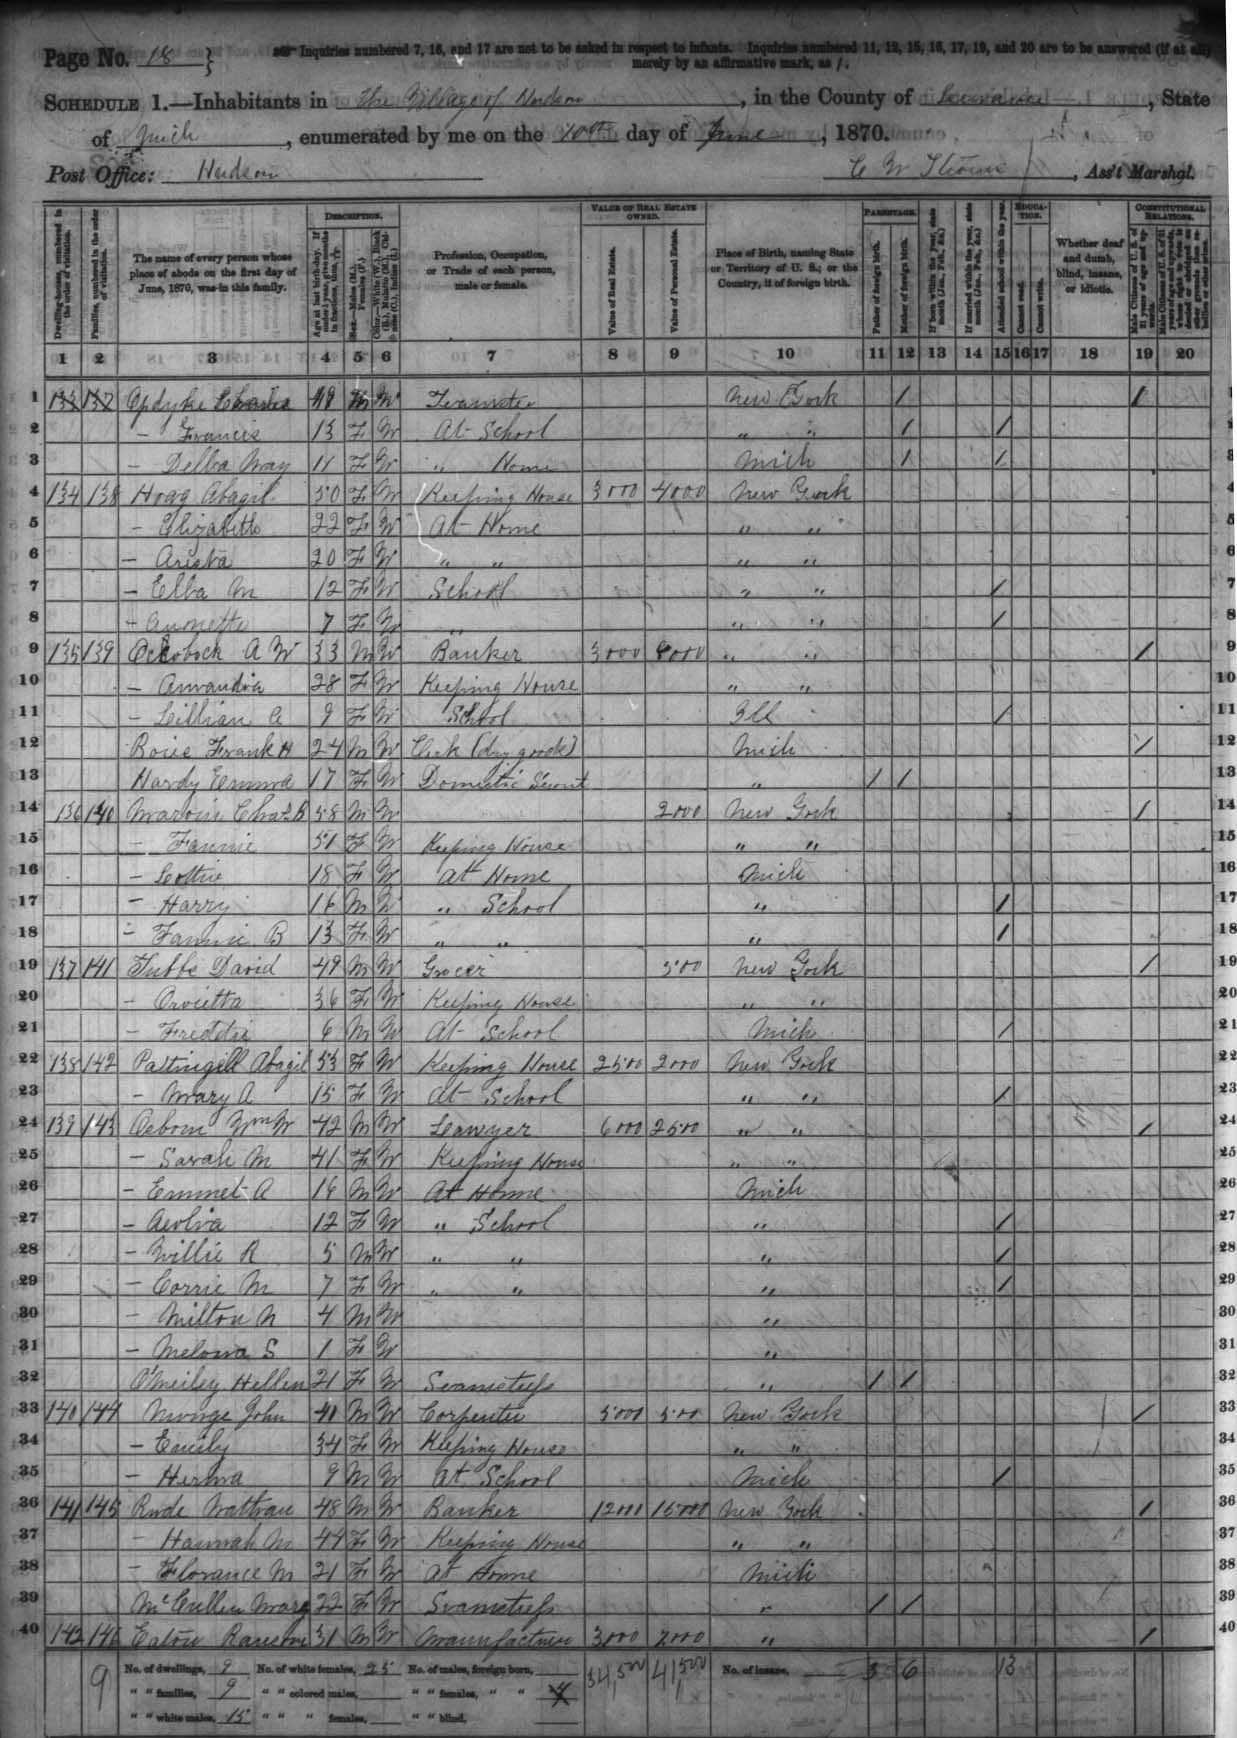 Page No. 18 } Inquiries numbered 7, 16, and 17 are not to be asked in respect to infants. Inquiries numbered 11, 12, 15, 16, 17, 19, and 20 are to be answered (if at all)
merely by an affirmative mark, as /.
SCHEDULE 1.—Inhabitants in The Village of Hudson, in the County of Lenawee, State
of Mich, enumerated by me on the 10th day of June, 1870.
Post Office: Hudson C W Ass't Marshal.
DESCRIPTION. VALUE OF REAL ESTATE OWNED. PARENTAGE. EDUCATION. CONSTITUTIONAL RELATIONS.
Dwelling-houses, numbered in the order of visitation.
Families, numbered in the order of visitation.
The name of every person whose place of abode on the first day of June, 1870, was in this family.
Age at last birth-day. If under 1 year, give months in fractions, thus, 3/12.
Sex.—Males (M.), Females (F.)
Color.—White (W.), Black (B.), Mulatto (M.), Chinese (C.), Indian (I.)
Profession, Occupation, or Trade of each person, male or female.
Value of Real Estate.
Value of Personal Estate.
Place of Birth, naming State or Territory of U. S.; or the Country, if of foreign birth.
Father of foreign birth.
Mother of foreign birth.
If born within the year, state month (Jan., Feb., &c.)
If married within the year, state month (Jan., Feb., &c.)
Attended school within the year.
Cannot read.
Cannot write.
Whether deaf and dumb, blind, insane, or idiotic.
Male Citizens of U. S. of 21 years of age and upwards.
Male Citizens of U. S. of 21 years of age and upwards, whose right to vote is denied or abridged on other grounds than rebellion or other crime.
1 2 3 4 5 6 7 8 9 10 11 12 13 14 15 16 17 18 19 20
1 133 137 Opdyke Charles 49 M W Teamster New York / / 1
2 — Francis 13 F W At School " " / / 2
3 — Delba May 11 F W " Home Mich / / 3
4 134 138 Hogg Abagil 50 F W Keeping House 3000 4000 New York 4
5 — Elizabeth 22 F W At Home " " 5
6 — Arista 20 F W " " " " 6
7 — Elba M 12 F W School " " / 7
8 — 7 F W " " " / 8
9 135 139 A W 33 M W Banker 3000 8000 " " / 9
10 — Amandia 28 F W Keeping House " " 10
11 — Lillian A 9 F W School Ill / 11
12 Boies Frank H 24 M W Clerk (dry goods) Mich / 12
13 Hardy Emma 17 F W Domestic Servnt " / / 13
14 136 140 Marvin Chas B 58 M W 2000 New York / 14
15 — Fannie 51 F W Keeping House " " 15
16 — Lottie 18 F W At Home Mich 16
17 — Harry 16 M W " School " / 17
18 — Fannie B 13 F W " " " / 18
19 137 141 Tubbs David 49 M W Grocer 500 New York / 19
20 — Orvietta 36 F W Keeping House " " 20
21 — Freddie 6 M W At School Mich / 21
22 138 142 Pattingill Abagil 53 F W Keeping House 2500 2000 New York 22
23 — Mary A 15 F W At School " " / 23
24 139 143 Osborn Wm W 42 M W Lawyer 6000 2500 " " / 24
25 — Sarah M 41 F W Keeping House " " 25
26 — Emmet A 16 M W At Home Mich 26
27 — Aeolia 12 F W " School " / 27
28 — Willie R 5 M W " " " / 28
29 — Corrie M 7 F W " " " / 29
30 — Milton N 4 M W " 30
31 — Melowa S 1 F W " 31
32 Hellen 21 F W Seamstress " / / 32
33 140 144 John 40 M W Carpenter 5000 500 New York / 33
34 — Emily 34 F W Keeping House " " 34
35 — Herma 9 M W At School Mich / 35
36 141 145 Rude 48 M W Banker 12000 15000 New York / 36
37 — Hannah M 44 F W Keeping House " " 37
38 — Florance M 21 F W At Home Mich 38
39 McCullen Mary 22 F W Seamstress " / / 39
40 142 146 Eaton Ransom 31 M W Manufacture 3000 7000 " / 40
9 No. of dwellings, 9 No. of white females, 25 No. of males, foreign born, 34,500 41,500 No. of insane, 3 6 13
" " families, 9 " " colored males, " " females, " "
" " white males, 15 " " " females, " " blind,